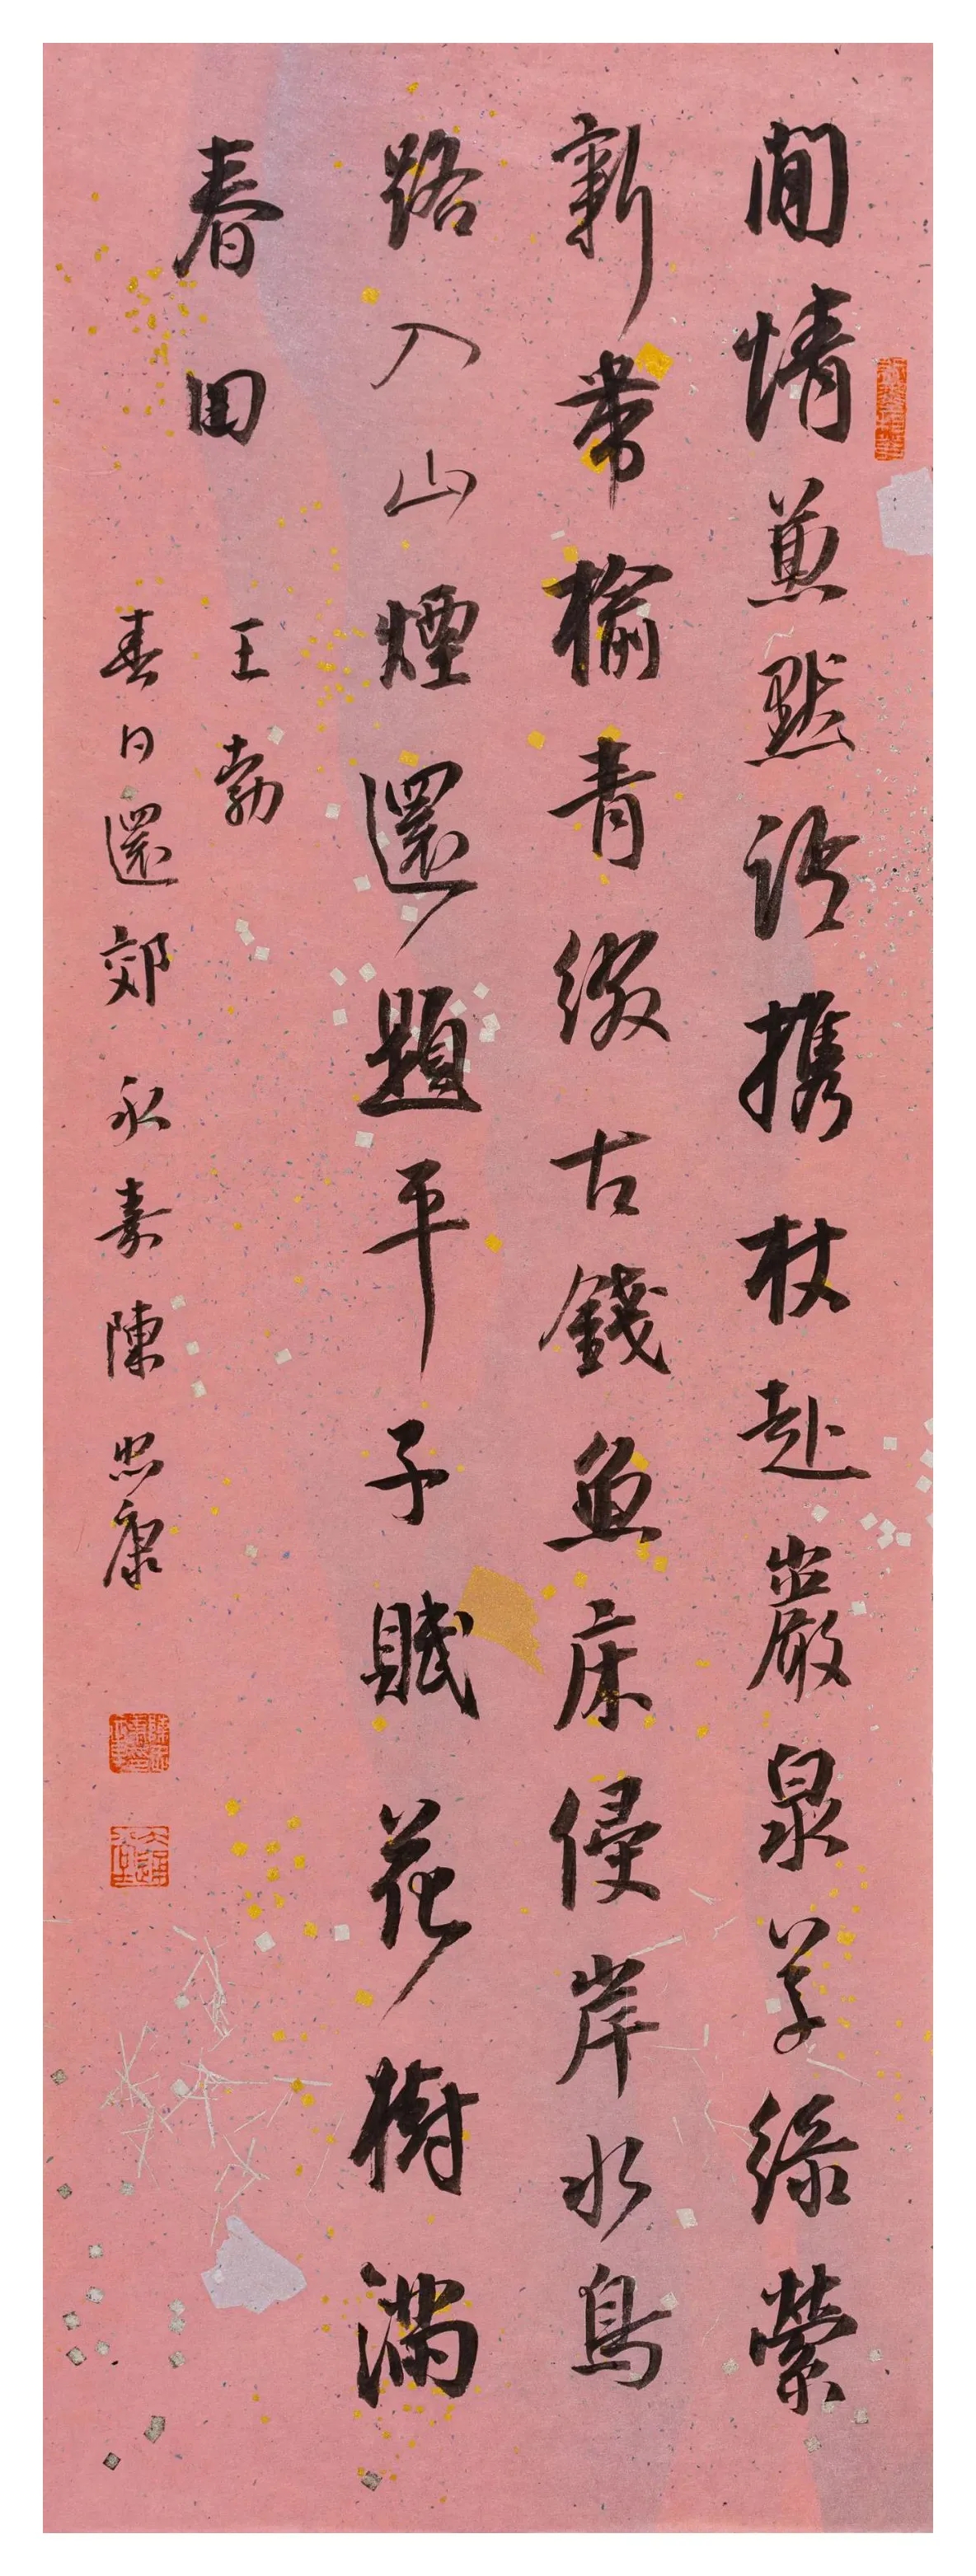 閒情兼默語携杖赴巖泉草綠縈
新帶榆青綴古錢魚床侵岸水鳥
路入山煙還題平子賦花樹滿
春田
王勃
春日還郊永嘉陳忠康